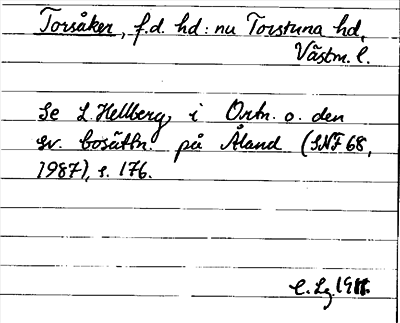 Torsåker, f.d. hd: nu Torstuna hd,
Västm. l.
Se L. Hellberg, i Ortn. o. den
sv. bosättn. på Åland (SNF 68,
1987), s. 176.